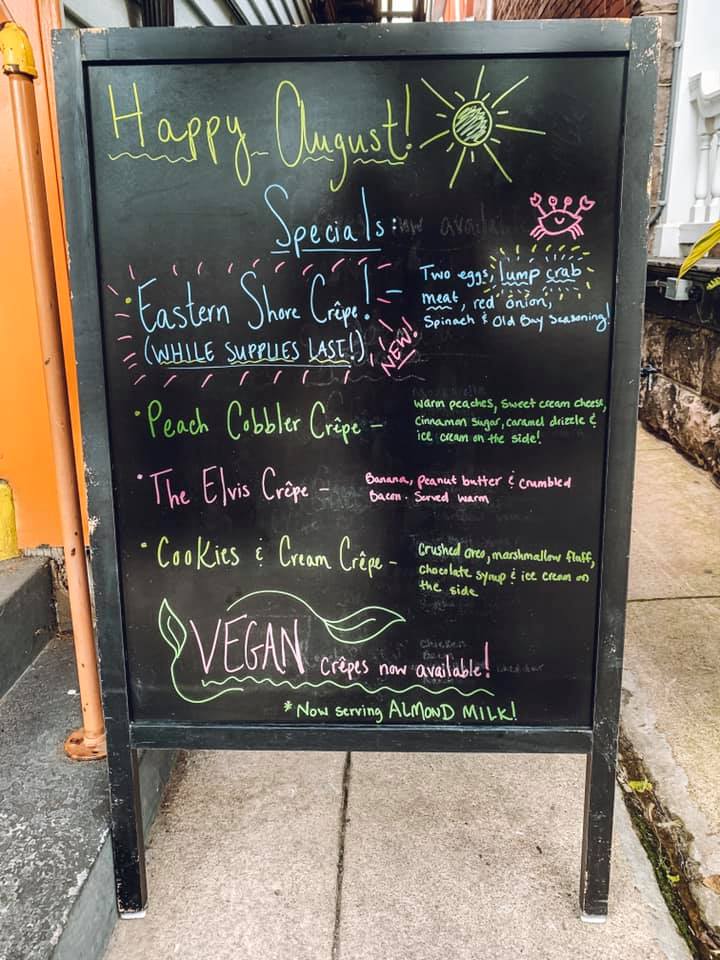 Happy August!
Specials:
• Eastern Shore Crêpe! -
(WHILE SUPPLIES LAST!)
NEW!
Two eggs, lump crab
meat, red onion,
Spinach & Old Bay Seasoning!
• Peach Cobbler Crêpe -
warm peaches, sweet cream cheese,
cinnamon sugar, caramel drizzle &
ice cream on the side!
• The Elvis Crêpe -
Banana, peanut butter & crumbled
Bacon. Served warm
• Cookies & Cream Crêpe -
Crushed oreo, marshmallow fluff,
chocolate syrup & ice cream on
the side
VEGAN crêpes now available!
* Now serving ALMOND MILK!